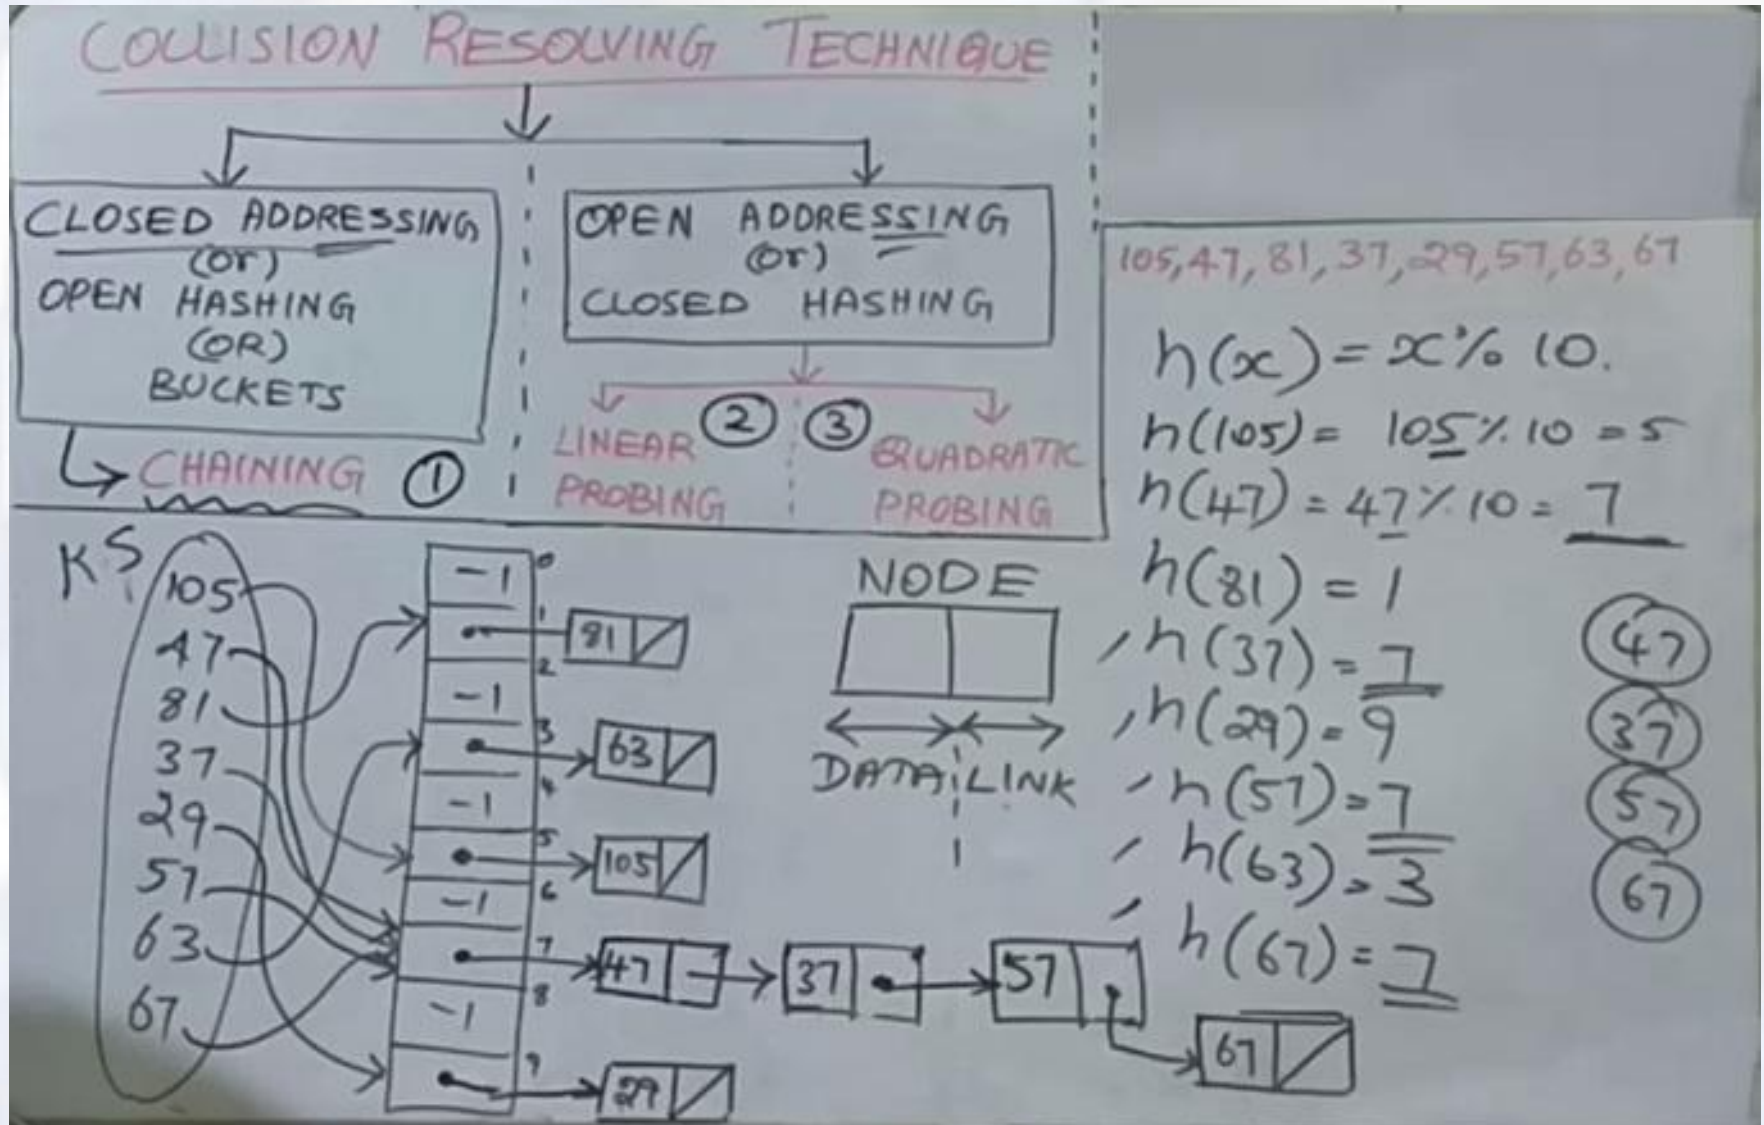 COLLISION RESOLVING TECHNIQUE
CLOSED ADDRESSING
(or)
OPEN HASHING
(OR)
BUCKETS
CHAINING ①
OPEN ADDRESSING
(or)
CLOSED HASHING
② ③
LINEAR
PROBING
QUADRATIC
PROBING
105, 47, 81, 37, 29, 57, 63, 67
h(x) = x % 10.
h(105) = 105 % 10 = 5
h(47) = 47 % 10 = 7
h(81) = 1
h(37) = 7
h(29) = 9
h(57) = 7
h(63) = 3
h(67) = 7
47
37
57
67
KS
105
47
81
37
29
57
63
67
-1 0
1 81
-1 2
3 63
-1 4
5 105
-1 6
7 47 37 57 67
-1 8
9 29
NODE
DATA LINK